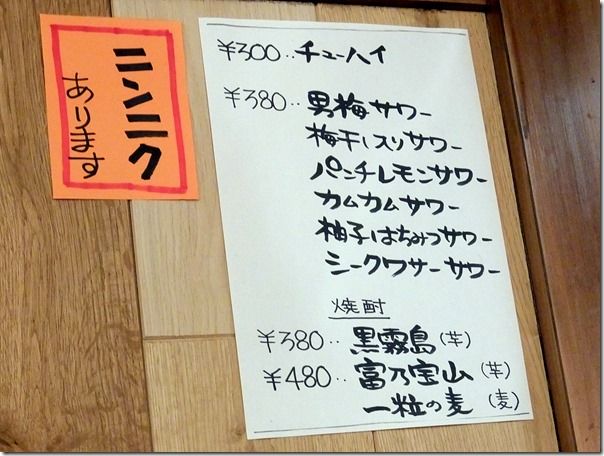 ニンニク
あります
¥300‥チューハイ
¥380‥男梅サワー
梅干しスリサワー
パンチレモンサワー
カムカムサワー
柚子はちみつサワー
シークワサーサワー
焼酎
¥380‥黒霧島(芋)
¥480‥富乃宝山(芋)
一粒の麦(麦)